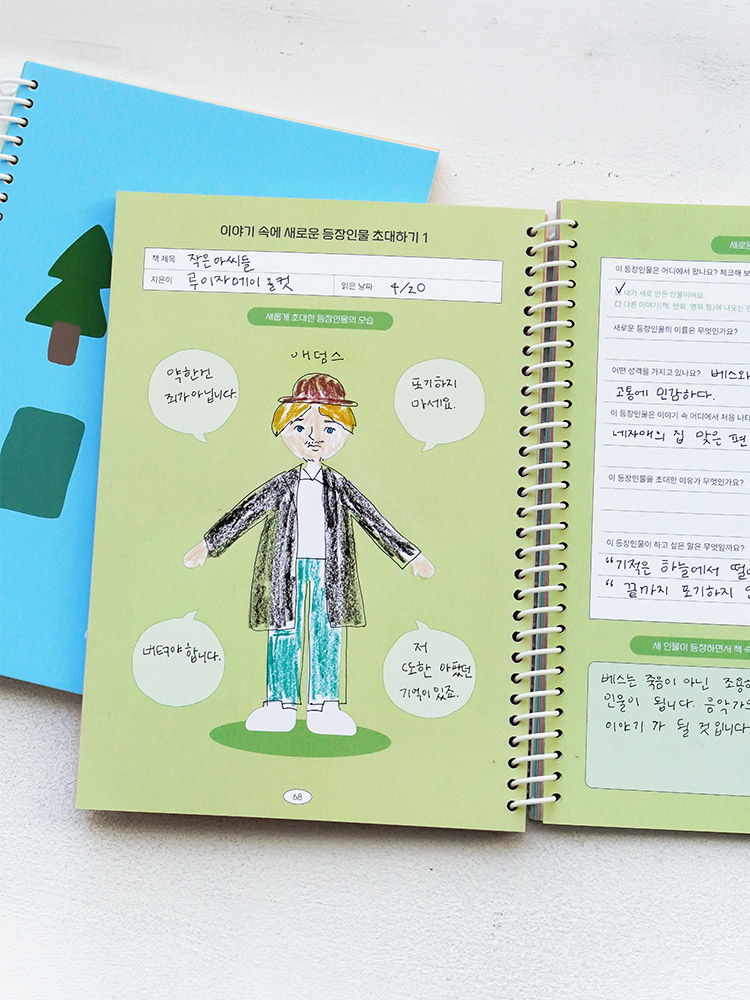 이야기 속에 새로운 등장인물 초대하기 1
책 제목 작은아씨들
지은이 루이자메이 올컷 읽은 날짜 4/20
새롭게 초대한 등장인물의 모습
애덩스
약한건
죄가 아닙니다.
포기하지
마세요.
버텨야 합니다.
저
또한 아팠던
기억이 있죠.
68
새로운
이 등장인물은 어디에서 왔나요? 체크해 보
내가 새로 만든 인물이에요.
다른 이야기(책, 만화, 영화 등)에 나오는 인
새로운 등장인물의 이름은 무엇인가요?
어떤 성격을 가지고 있나요? 베스와
고통에 민감하다.
이 등장인물은 이야기 속 어디에서 처음 나타
네자매의 집 맞은 편
이 등장인물을 초대한 이유가 무엇인가요?
이 등장인물이 하고 싶은 말은 무엇일까요?
"기적은 하늘에서 떨어
" 끝까지 포기하지
새 인물이 등장하면서 책 속
베스는 죽음이 아닌 조용하
인물이 됩니다. 음악가의
이야기 가 될 것입니다